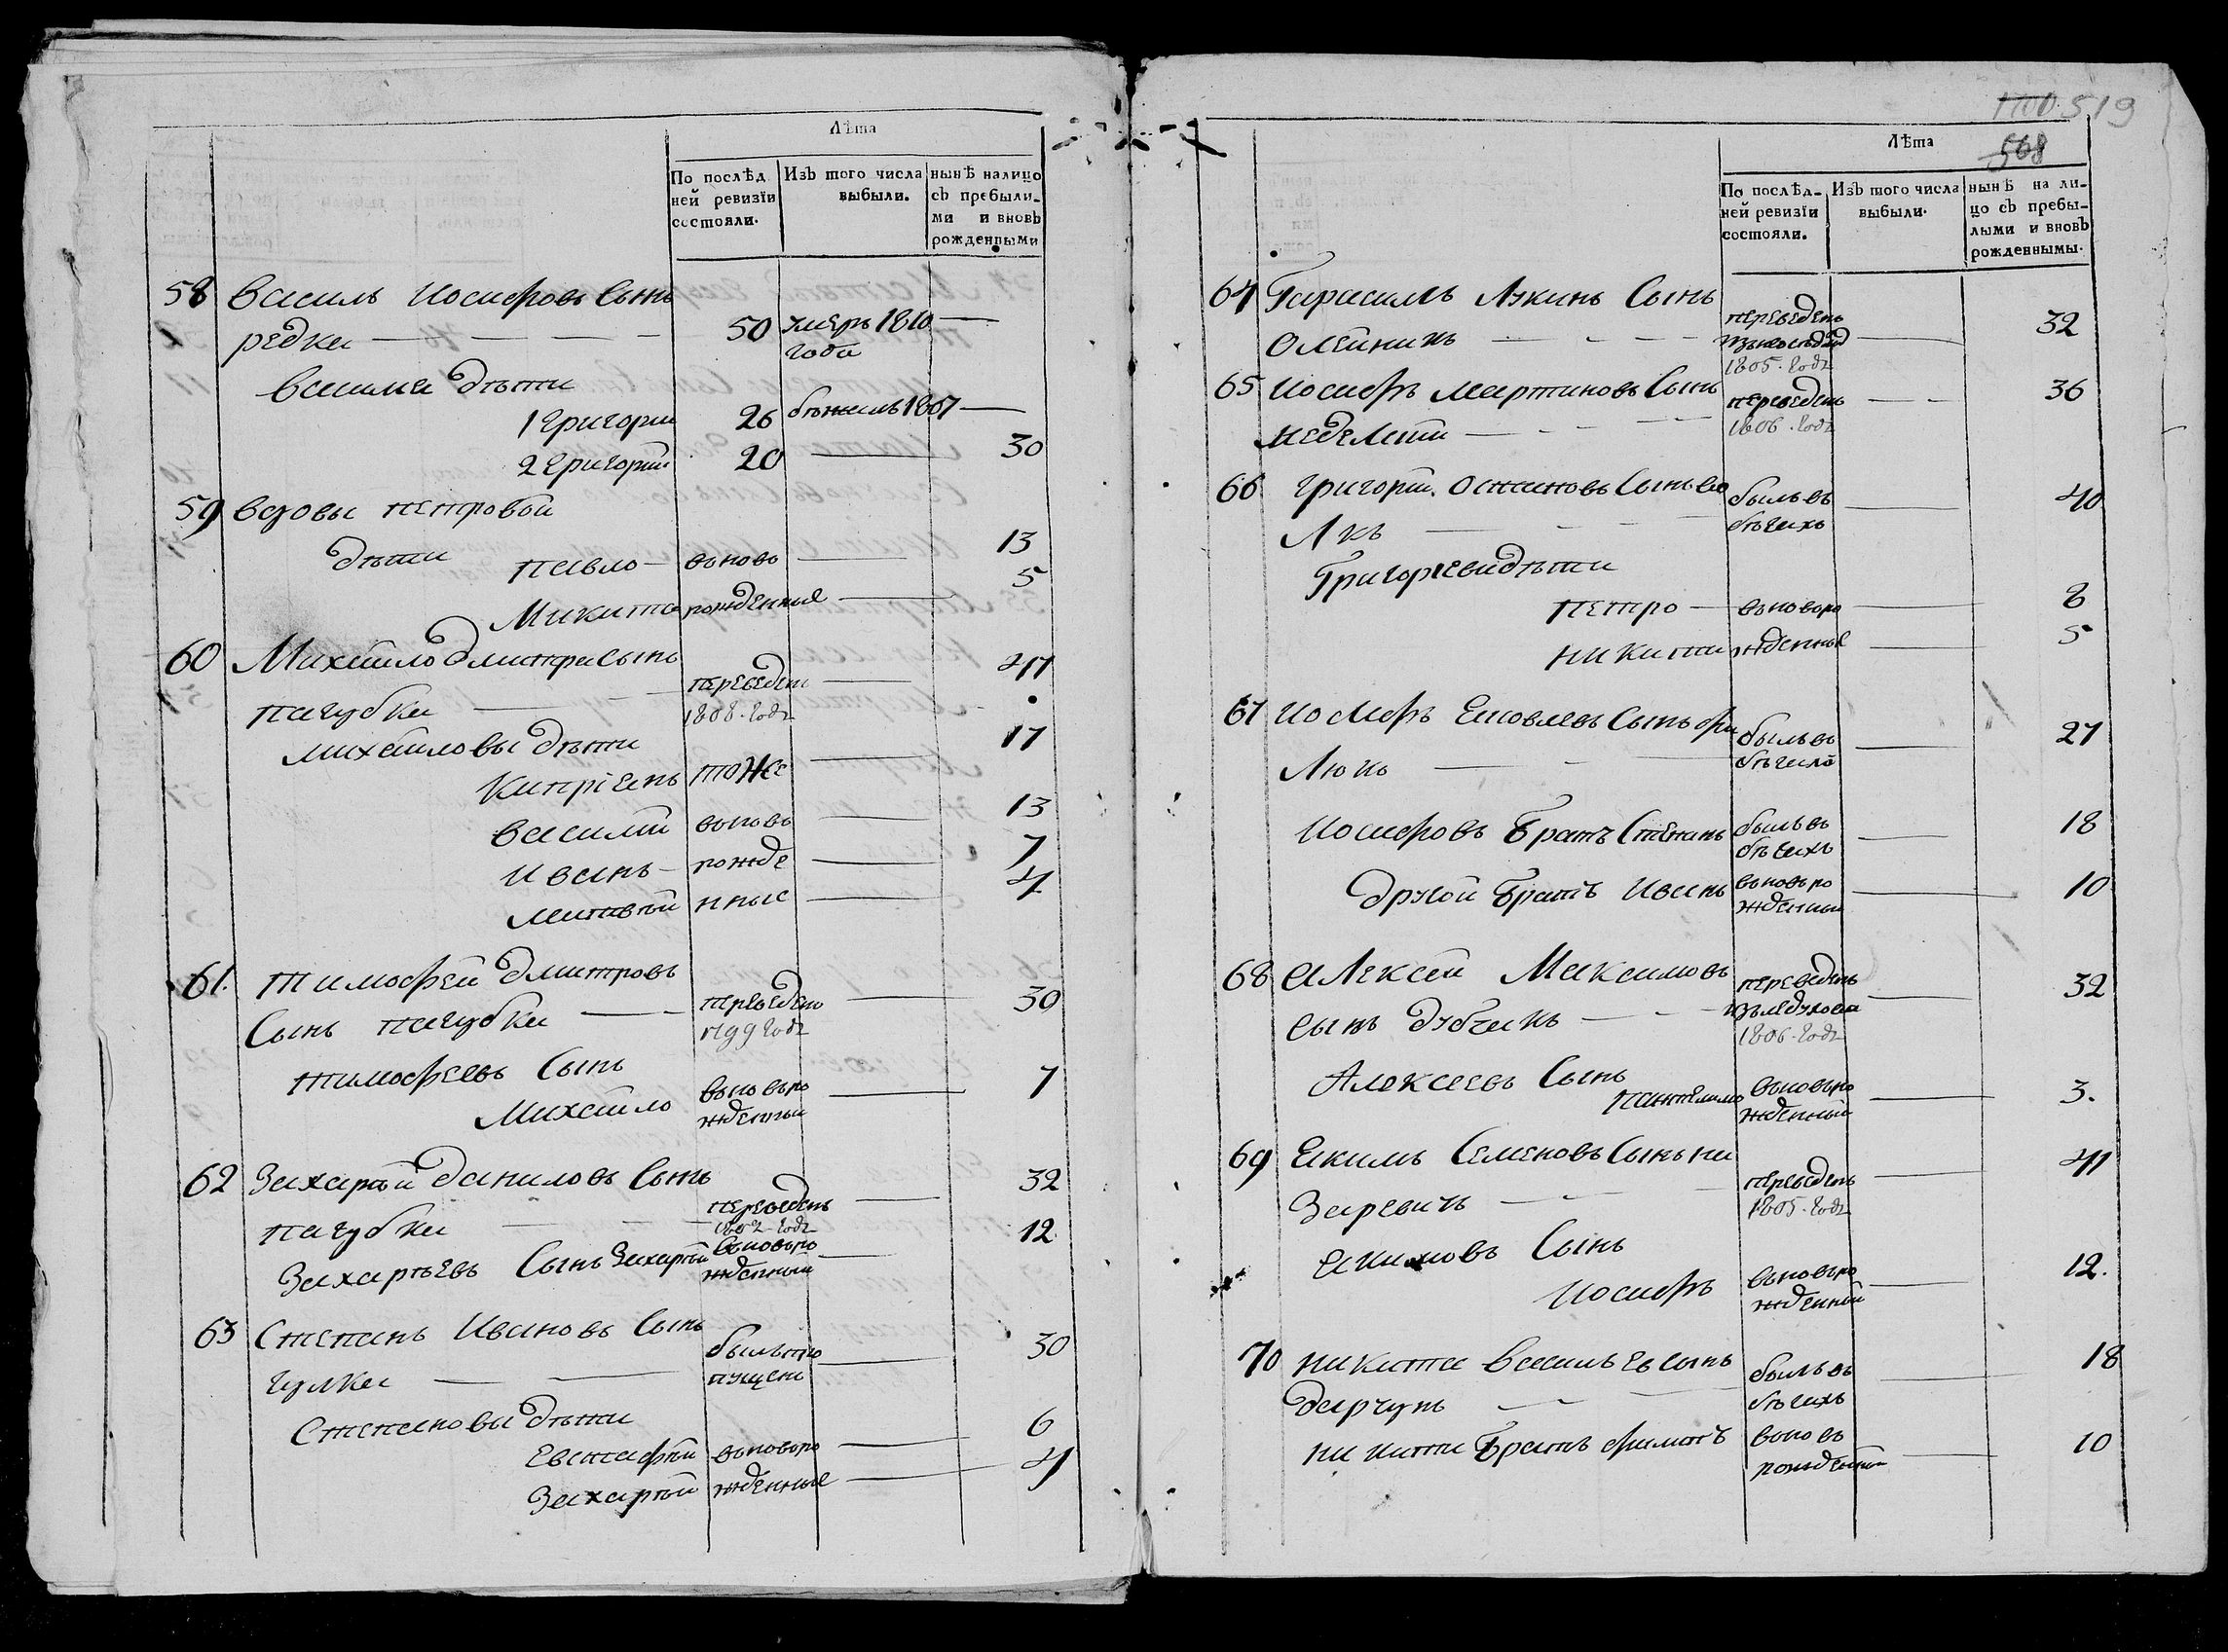 Лѣта
По послѣд
ней ревизїи
состояли.
Изъ того числа
выбыли.
нынѣ налицо
съ пребыли-
ми и вновь
рожденными
58 василь иосифовъ сынъ
редка 50 умеръ 1810
года
василя дѣти
1 григории 26 бѣжалъ 1807
2 григории 20 30
59 вдовы петровой
дѣти павло вьновь 13
Микита рожденные 5
60 Михайло дмитра сынъ
пагубка переведенъ 41
1808 годa
михайловы дѣти
Кипріянъ тоже 17
василий вьновь 13
иванъ рожде 7
матвѣй нные 4
61. тимофей дмитровъ
Сынъ пагубка переведенъ 30
1799 годa
тимофеевъ Сынъ
Михайло вьновьро 7
жденный
62 Захарѣй даниловъ Сынъ
пагубка переведенъ 32
1802 годa
Захарѣевъ Сынъ Захарѣй вьновьро 12
жденный
63 Степанъ Ивановъ Сынъ
гулка былъпро 30
пущенъ
Степановы дѣти
Евстафѣй вьновьро 6
Захарѣй жденные 4
519
568
Лѣта
По послѣд-
ней ревизїи
состояли.
Изъ того числа
выбыли.
нынѣ на ли-
цо съ пребы-
лыми и вновъ
рожденнымы.
64 Гарасимъ Лукинъ Сынъ
Олейникъ переведенъ 32
1805 годa
65 иосифъ мартиновъ Сынъ
неделѣи переведенъ 36
1806 годa
66 григорѣй Остаповъ Сынъ во
Лкъ былъвъ 40
бѣгахъ
Григориевы дѣти
петро вьновьро 8
никита жденные 5
67 иосифъ Яковлевъ Сынъ фри
Люкъ былъвъ 27
бѣгахъ
иосифовъ братъ Степанъ былъвъ 18
бѣгахъ
другой братъ Иванъ вьновьро 10
жденный
68 алексей Максимовъ
сынъ дубчакъ переведенъ 32
1806 годa
Алексеевъ Сынъ
пантелимо вьновьро 3.
жденный
69 Якимъ Семеновъ Сынъ на
Заревичъ переведенъ 41
1805 годa
Якимовъ Сынъ
иосифъ вьновьро 12.
жденный
70 никита василъевсынъ
дарчукъ былъвъ 18
бѣгахъ
никити братъ филипъ вьновъ 10
рожденный